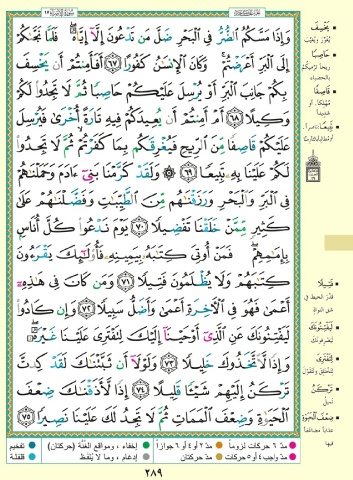 وَإِذَا مَسَّكُمُ ٱلضُّرُّ فِي ٱلْبَحْرِ ضَلَّ مَن تَدْعُونَ إِلَّآ إِيَّاهُ ۖ فَلَمَّا نَجَّىٰكُمْ
إِلَى ٱلْبَرِّ أَعْرَضْتُمْ ۚ وَكَانَ ٱلْإِنسَٰنُ كَفُورًا ٦٧ أَفَأَمِنتُمْ أَن يَخْسِفَ
بِكُمْ جَانِبَ ٱلْبَرِّ أَوْ يُرْسِلَ عَلَيْكُمْ حَاصِبًا ثُمَّ لَا تَجِدُوا۟ لَكُمْ
وَكِيلًا ٦٨ أَمْ أَمِنتُمْ أَن يُعِيدَكُمْ فِيهِ تَارَةً أُخْرَىٰ فَيُرْسِلَ
عَلَيْكُمْ قَاصِفًا مِّنَ ٱلرِّيحِ فَيُغْرِقَكُم بِمَا كَفَرْتُمْ ۙ ثُمَّ لَا تَجِدُوا۟
لَكُمْ عَلَيْنَا بِهِۦ تَبِيعًا ٦٩ ۞ وَلَقَدْ كَرَّمْنَا بَنِىٓ ءَادَمَ وَحَمَلْنَٰهُمْ
فِي ٱلْبَرِّ وَٱلْبَحْرِ وَرَزَقْنَٰهُم مِّنَ ٱلطَّيِّبَٰتِ وَفَضَّلْنَٰهُمْ عَلَىٰ
كَثِيرٍ مِّمَّنْ خَلَقْنَا تَفْضِيلًا ٧٠ يَوْمَ نَدْعُوا۟ كُلَّ أُنَاسٍۭ
بِإِمَٰمِهِمْ ۖ فَمَنْ أُوتِىَ كِتَٰبَهُۥ بِيَمِينِهِۦ فَأُو۟لَٰٓئِكَ يَقْرَءُونَ
كِتَٰبَهُمْ وَلَا يُظْلَمُونَ فَتِيلًا ٧١ وَمَن كَانَ فِي هَٰذِهِۦٓ
أَعْمَىٰ فَهُوَ فِي ٱلْءَاخِرَةِ أَعْمَىٰ وَأَضَلُّ سَبِيلًا ٧٢ وَإِن كَادُوا۟
لَيَفْتِنُونَكَ عَنِ ٱلَّذِىٓ أَوْحَيْنَآ إِلَيْكَ لِتَفْتَرِىَ عَلَيْنَا غَيْرَهُۥ ۖ
وَإِذًا لَّٱتَّخَذُوكَ خَلِيلًا ٧٣ وَلَوْلَآ أَن ثَبَّتْنَٰكَ لَقَدْ كِدتَّ
تَرْكَنُ إِلَيْهِمْ شَيْـًٔا قَلِيلًا ٧٤ إِذًا لَّأَذَقْنَٰكَ ضِعْفَ
ٱلْحَيَوٰةِ وَضِعْفَ ٱلْمَمَاتِ ثُمَّ لَا تَجِدُ لَكَ عَلَيْنَا نَصِيرًا ٧٥
يَخْسِفَ
حَاصِبًا
قَاصِفًا
تَبِيعًا
فَتِيلًا
لَيَفْتِنُونَكَ
لِتَفْتَرِيَ
تَرْكَنُ
ضِعْفَ الْحَيَوٰةِ
مدّ ٦ حركات لزوماً مدّ ٢ أو ٤ أو ٦ جوازاً إخفاء، ومواقع الغُنَّة (حركتان) تفخيم
مدّ واجب ٤ أو ٥ حركات مدّ حركتان إدغام، وما لا يُلفَظ قلقلة
٢٨٩